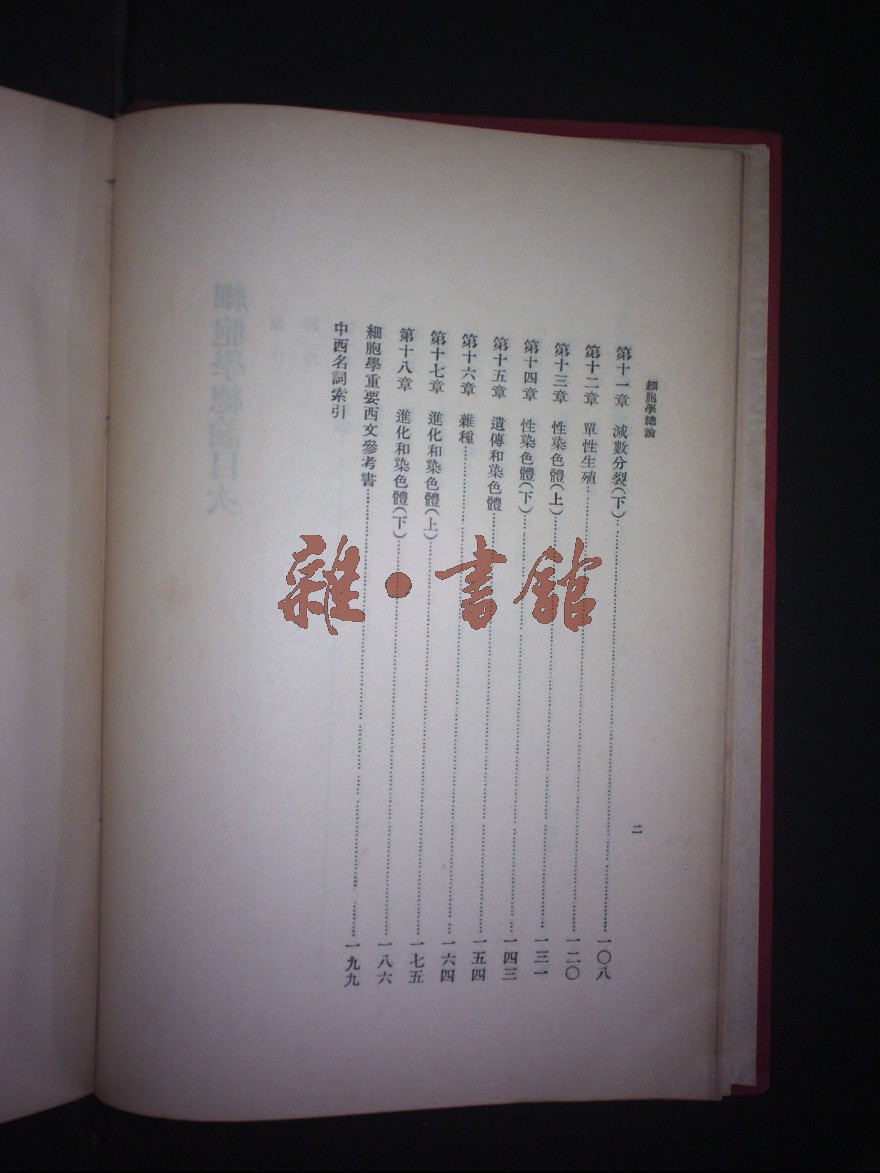 細胞學總論
二
第十一章 減數分裂(下)……一〇八
第十二章 單性生殖……一二〇
第十三章 性染色體(上)……一三一
第十四章 性染色體(下)……一四三
第十五章 遺傳和染色體……一五四
第十六章 雜種……一六四
第十七章 進化和染色體(上)……一七五
第十八章 進化和染色體(下)……一八六
細胞學重要西文參考書……一九九
中西名詞索引
雜•書館